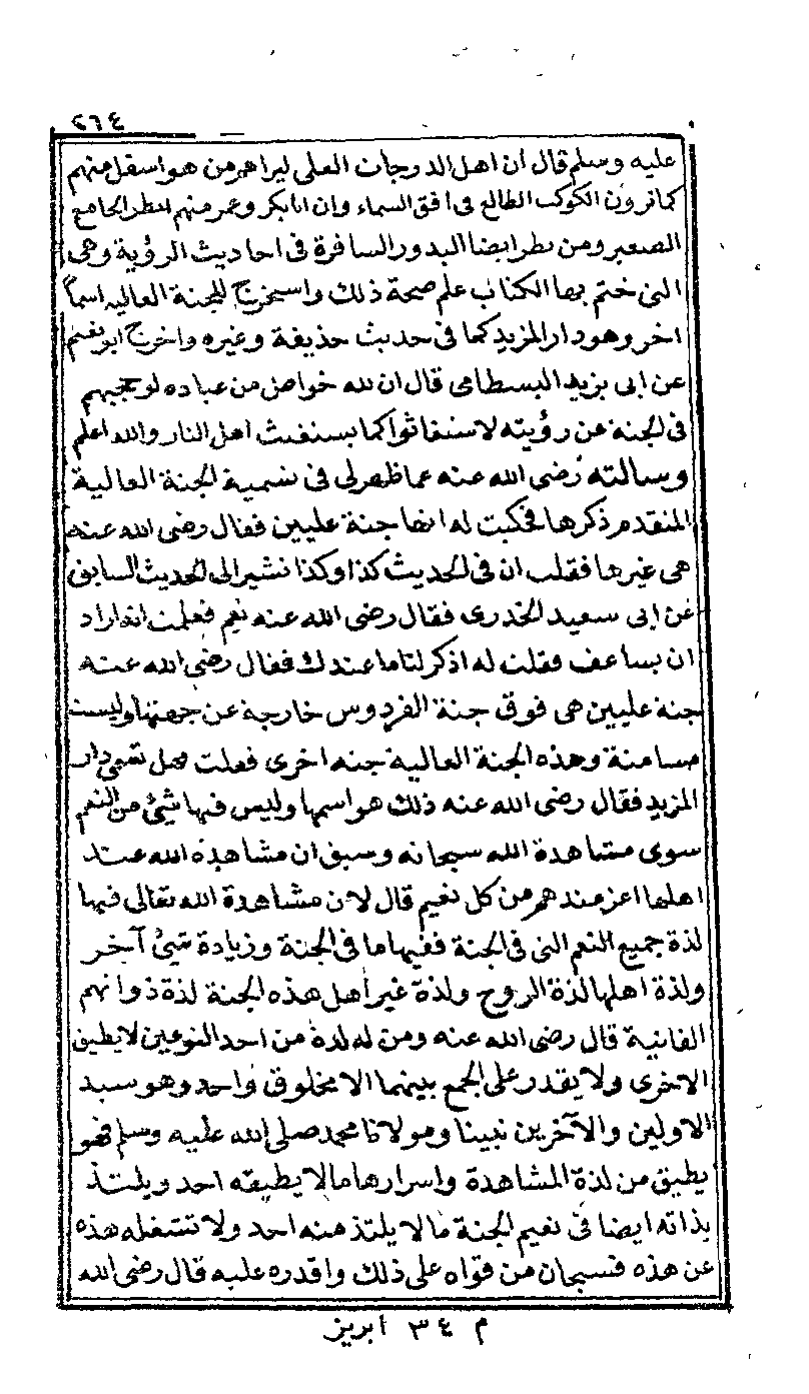 ٢٦٤
عليه وسلم قال ان اهل الدرجات العلى ليراهم من هو اسفل منهم
كما ترون الكوكب الطالع فى افق السماء وان ابا بكر وعمر منهم انظر الجامع
الصغير ومن نظر ايضا البدور السافرة فى احاديث الرؤية وهى
التى ختم بها الكتاب علم صحة ذلك واستخرج للجنة العالية اسما
اخر وهو دار المزيد كما فى حديث حذيفة وغيره واخرج ابو نعيم
عن ابى يزيد البسطامى قال ان لله خواص من عباده لو حجبهم
فى الجنة عن رؤيته لاستغاثوا كما يستغيث اهل النار والله اعلم
وسالته رضى الله عنه عما ظهر لى فى تسمية الجنة العالية
المتقدم ذكرها فكتبت له انها جنة عليين فقال رضى الله عنه
هى غيرها فقلت ان فى الحديث كذا وكذا نشير الى الحديث السابق
عن ابى سعيد الخدرى فقال رضى الله عنه نعم فعلمت انه اراد
ان يساعف فقلت له اذكر لنا ما عندك فقال رضى الله عنه
جنة عليين هى فوق جنة الفردوس خارجة عن جهتها وليست
مسامتة وهذه الجنة العالية جنة اخرى فقلت فهل تسمى دار
المزيد فقال رضى الله عنه ذلك هو اسمها وليس فيها شئ من النعم
سوى مشاهدة الله سبحانه وسبق ان مشاهدة الله عند
اهلها اعز عندهم من كل نعيم قال لان مشاهدة الله تعالى فيها
لذة جميع النعم التى فى الجنة ففيها ما فى الجنة وزيادة شئ آخر
ولذة اهلها لذة الروح ولذة غير اهل هذه الجنة لذة ذواتهم
الفانية قال رضى الله عنه ومن له لذة من احد النوعين لا يطيق
الاخرى ولا يقدر على الجمع بينهما الا مخلوق واحد وهو سيد
الاولين والآخرين نبينا ومولانا محمد صلى الله عليه وسلم فهو
يطيق من لذة المشاهدة واسرارها ما لا يطيقه احد ويلتذ
بذاته ايضا فى نعيم الجنة ما لا يلتذ منه احد ولا تشغله هذه
عن هذه فسبحان من قواه على ذلك واقدره عليه قال رضى الله
م ٣٤ ابريز